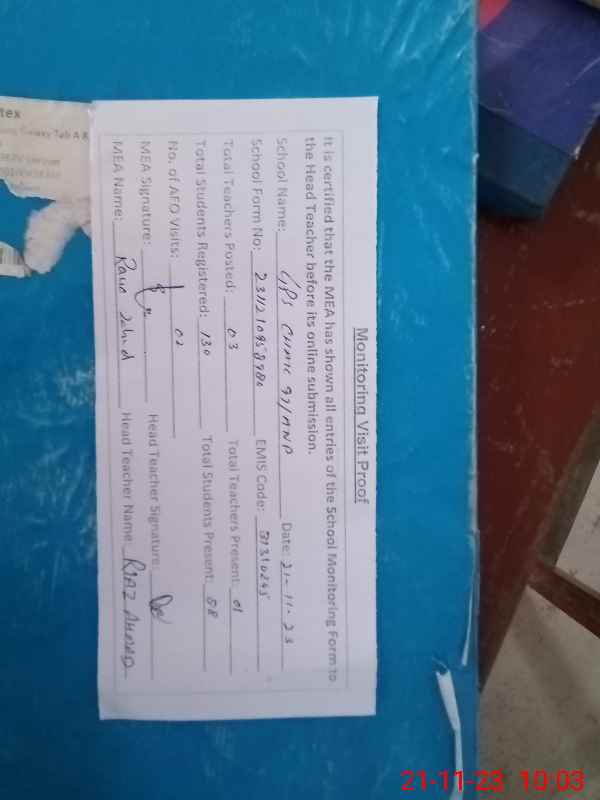 Monitoring Visit Proof
It is certified that the MEA has shown all entries of the School Monitoring Form to
the Head Teacher before its online submission.
School Name: GPS CHAK 97/ANP Date: 21-11-23
School Form No: EMIS Code: 31310245
Total Teachers Posted: 03 Total Teachers Present: 01
Total Students Registered: 130 Total Students Present: 58
No. of AFO Visits: 02
MEA Signature: Head Teacher Signature:
MEA Name: Rana Head Teacher Name: RIAZ AHMAD
tex
Galaxy Tab A 8
21-11-23 10:03